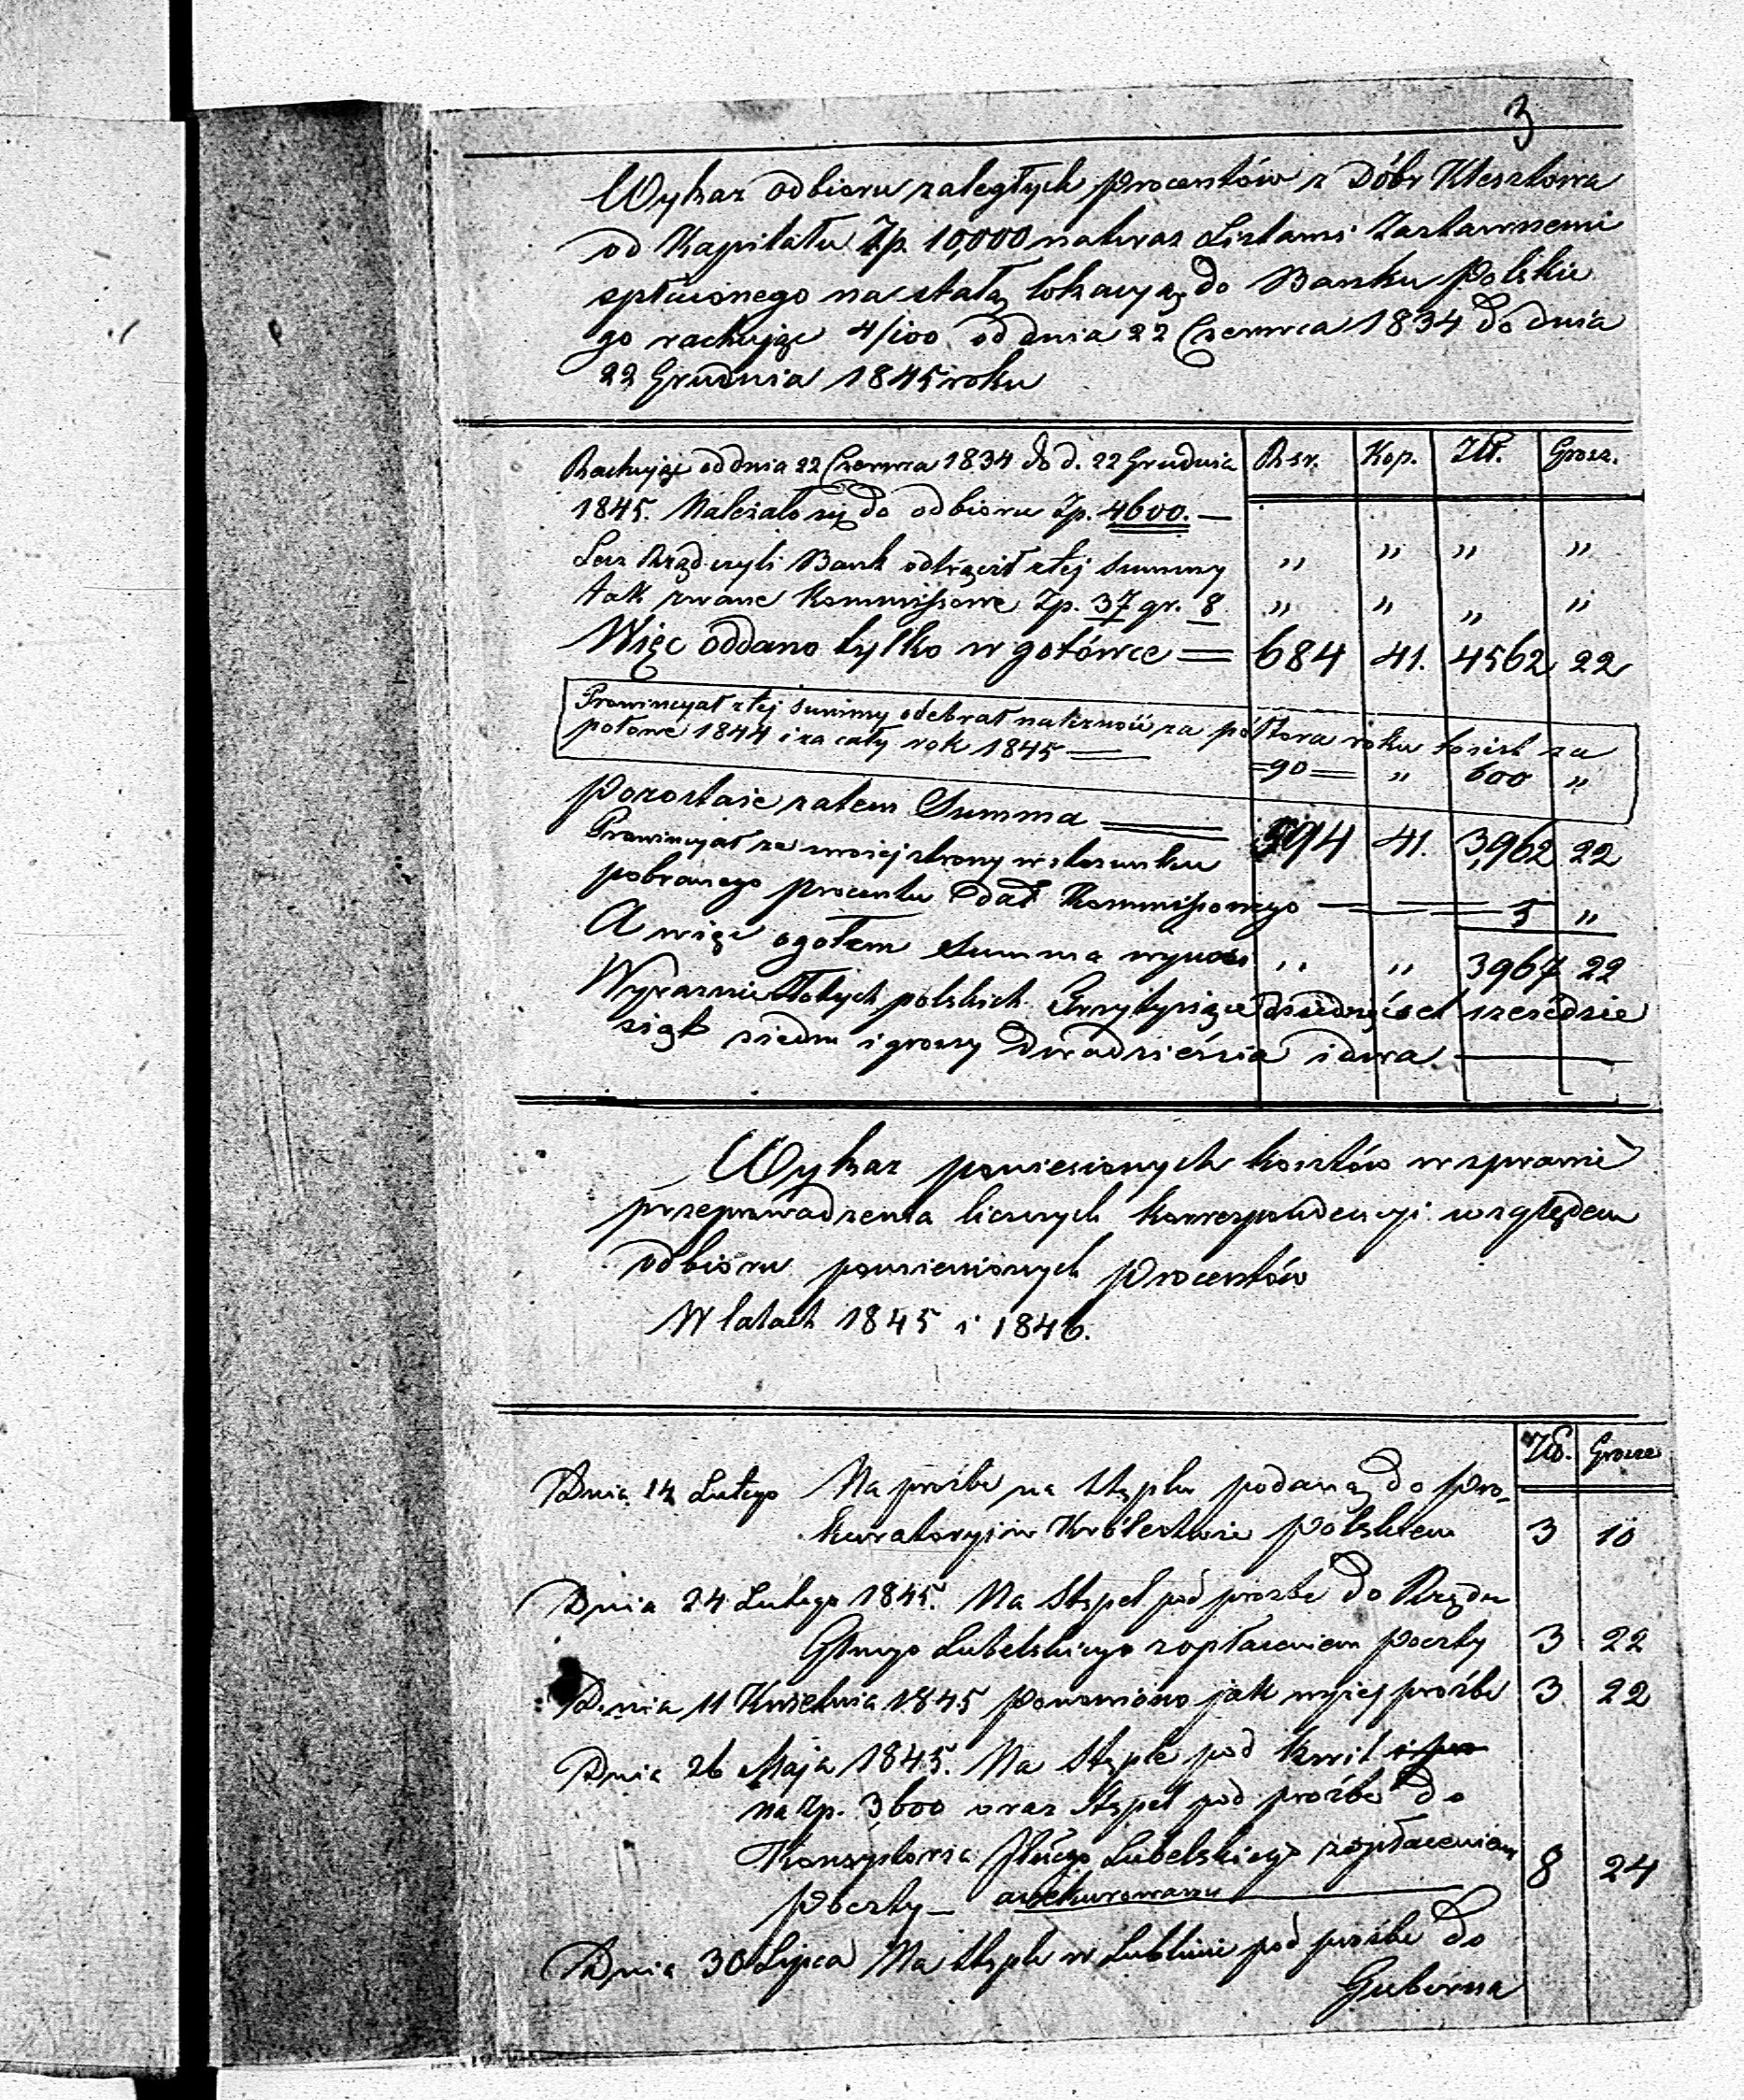 3
Wykaz odbioru zaległych Procentów z Dóbr Kleszlowa
od Kapitału Zp. 10,000 natenczas Listami Zastawnemi
spłaconego na stałą lokacyą do Banku Polskie
go rachując 4/100 od dnia 22 Czerwca 1834 do dnia
22 Grudnia 1845 roku
Rachując od dnia 22 Czerwca 1834 do d. 22 Grudnia Rsr. Kop. Złt. Grosz.
1845. Należało się do odbioru Zp. 4600. —
Lecz Rząd czyli Bank odtrącił z tej Summy „ „ „ „
tak zwane Kommissowe Zp. 37 gr. 8 „ „ „ „
Więc oddano tylko w gotówce = 684 41. 4562 22
Prowincyał z tej summy odebrał należność za półtora roku to jest za
połowę 1844 i za cały rok 1845 — = 90 = „ 600 „
Pozostaje zatem Summa = 594 41. 3,962 22
Prowincyał ze swojej strony w stosunku
pobranego procentu dał Kommissowego — 5 „
A więc ogółem Summa wynosi „ „ 3967 22
Wyraźnie Złotych polskich Trzy tysiące dziewięćset sześćdzie
siąt siedm i groszy dwadzieścia i dwa —
Wykaz poniesionych kosztów w sprawie
przeprowadzenia licznych korrespondencyi względem
odbioru pomienionych Procentów
W latach 1845 i 1846.
Złt. Grosze
Dnia 14 Lutego Na prośbę na stęplu podaną do Pro-
kuratoryi w Królestwie Polskiem 3 10
Dnia 24 Lutego 1845. Na Stępel pod prośbę do Rządu
Gbnego Lubelskiego z opłaceniem Poczty 3 22
Dnia 11 Kwietnia 1845 Ponowiono jak wyżej prośbę 3. 22
Dnia 26 Maja 1845. Na Stęple pod kwit
na Zp. 3,600 oraz Stępel pod prośbę do
Konsystorza Lubelskiego z opłaceniem 8 24
Poczty — assekurowaney —
Dnia 30 Lipca Na stęple w Lublinie pod prośbę do
Guberna